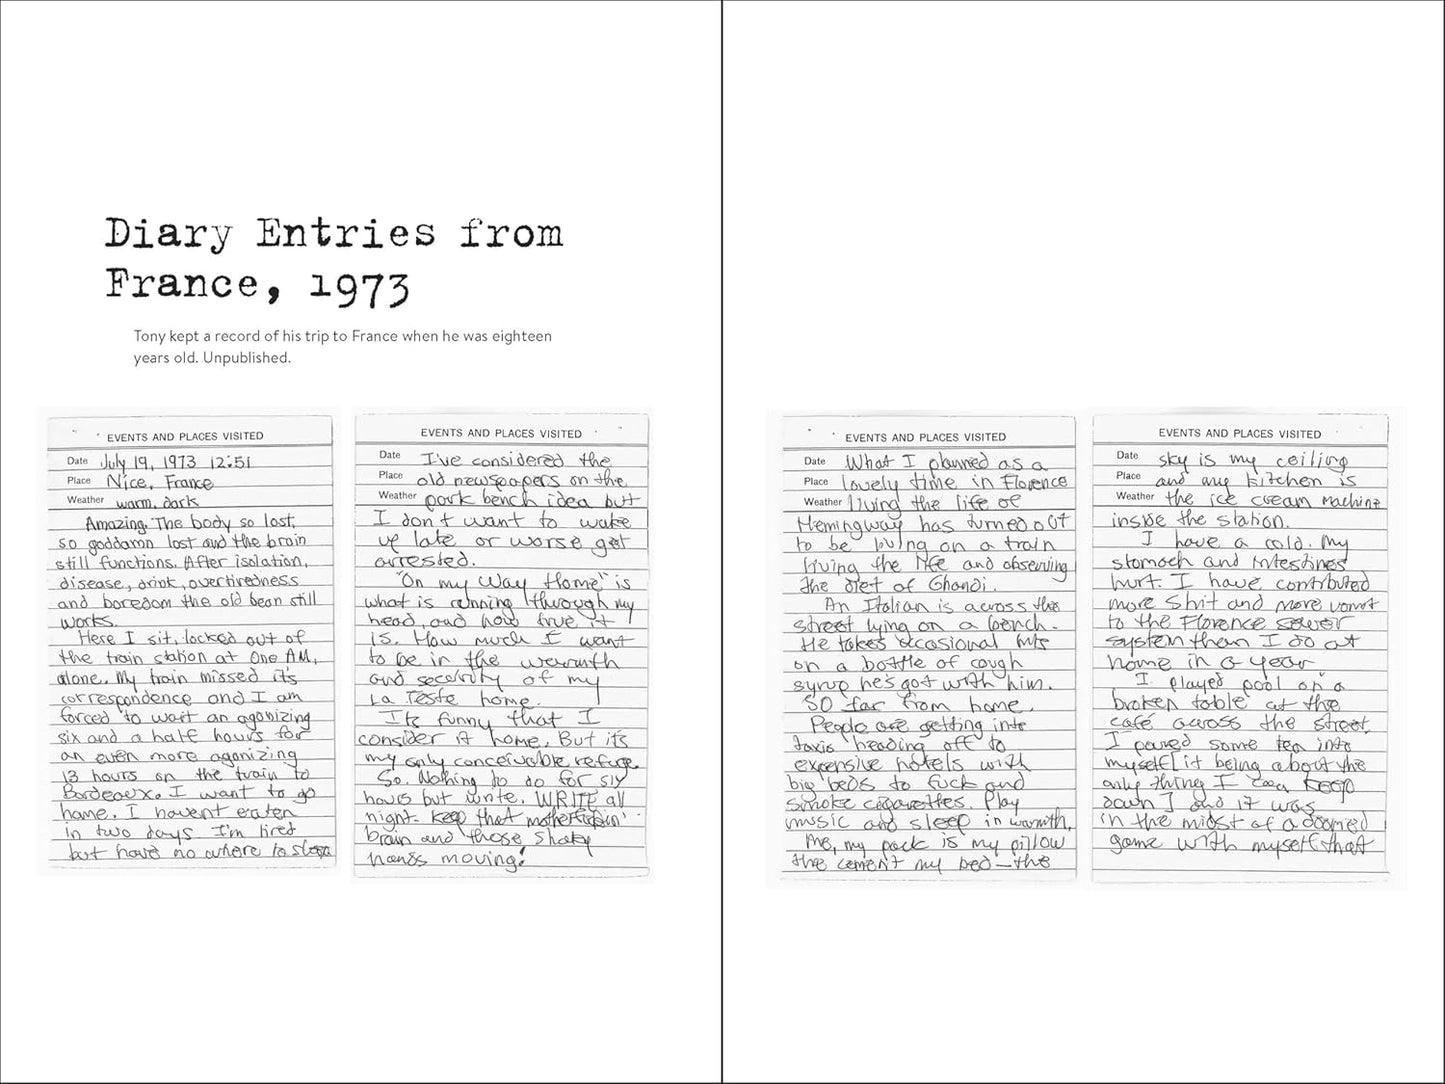 Diary Entries from
France, 1973
Tony kept a record of his trip to France when he was eighteen
years old. Unpublished.
EVENTS AND PLACES VISITED
Date July 19, 1973 12:51
Place Nice, France
Weather warm, dark
Amazing. The body so lost,
so goddamn lost and the brain
still functions. After isolation,
disease, drink, overtiredness
and boredom the old bean still
works.
Here I sit, locked out of
the train station at One AM,
alone. My train missed its
correspondence and I am
forced to wait an agonizing
six and a half hours for
an even more agonizing
13 hours on the train to
Bordeaux. I want to go
home. I havent eaten
in two days. I'm tired
but have no where to sleep
EVENTS AND PLACES VISITED
Date I've considered the
Place old newspapers on the
Weather park bench idea but
I don't want to wake
up late or worse get
arrested.
"On my Way Home" is
what is running through my
head, and how true it
is. How much I want
to be in the warmth
and security of my
La Teste home.
Its funny that I
consider it home. But its
my only conceivable refuge.
So. Nothing to do for six
hours but write. WRITE all
night. Keep that motherfuckin'
brain and those shaky
hands moving!
EVENTS AND PLACES VISITED
Date What I planned as a
Place lovely time in Florence
Weather living the life of
Hemingway has turned out
to be living on a train
living the life and observing
the diet of Ghandi.
An Italian is across the
street lying on a bench.
He takes occasional hits
on a bottle of cough
syrup he's got with him.
SO far from home.
People are getting into
taxis heading off to
expensive hotels with
big beds to fuck and
smoke cigarettes. Play
music and sleep in warmth.
Me, my pack is my pillow
the cement my bed—the
EVENTS AND PLACES VISITED
Date sky is my ceiling
Place and my kitchen is
Weather the ice cream machine
inside the station.
I have a cold. My
stomach and intestines
hurt. I have contributed
more shit and more vomit
to the Florence sewer
system then I do at
home in a year
I played pool on a
broken table at the
café across the street.
I poured some tea into
myself it being about the
only thing I can keep
down I and it was
in the midst of a doomed
game with myself that